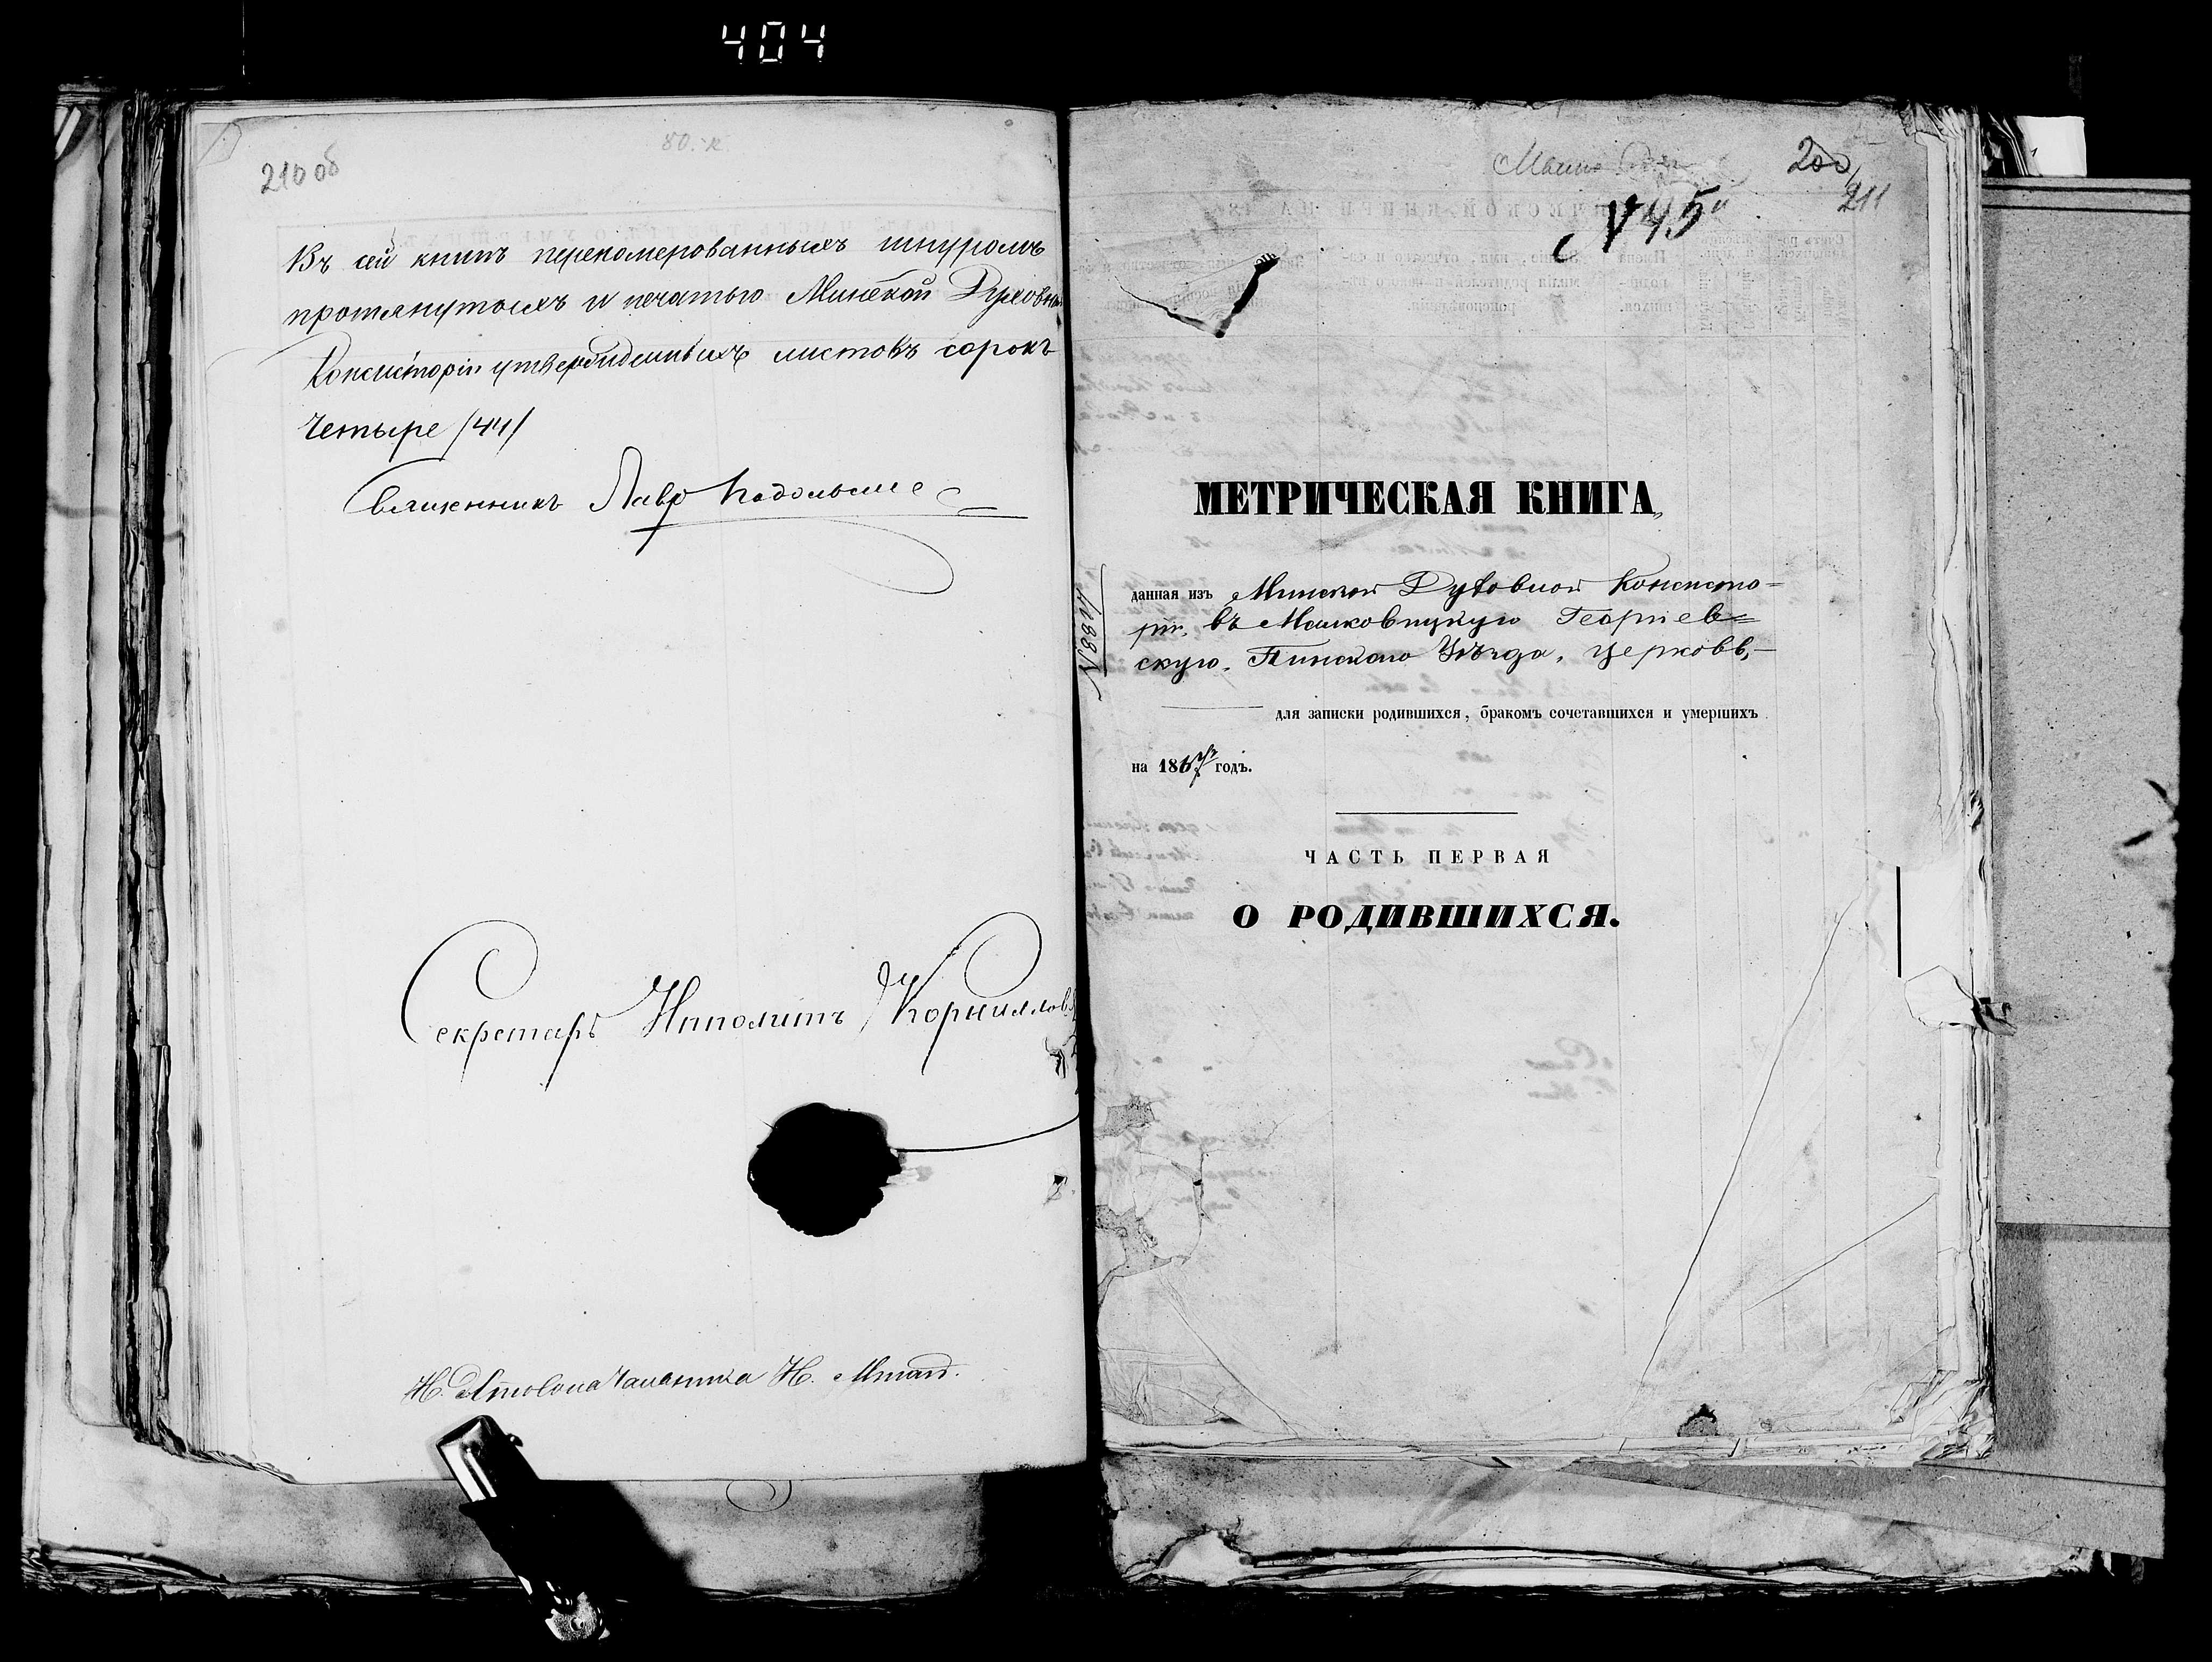 404
210 об
80.-к.
Въ сей книгѣ перекомерованныхъ шнуромъ
протянутыхъ и печатью Минской Духовной
Консисторіи утвержденныхъ листовъ сорокъ
Четыре /44/
Священникъ Лавр
Секретарь Ипполитъ Корниллов
Н. Столоначальника Н.
200
211
N 45й
МЕТРИЧЕСКАЯ КНИГА,
данная изъ Минской Духовной Консисто-
ріи, въ Малковицкую Георгиев-
скую, Пинского Уѣзда, церковь,-
для записки родившихся, бракомъ сочетавшихся и умершихъ
на 1867й годъ.
ЧАСТЬ ПЕРВАЯ
О РОДИВШИХСЯ.